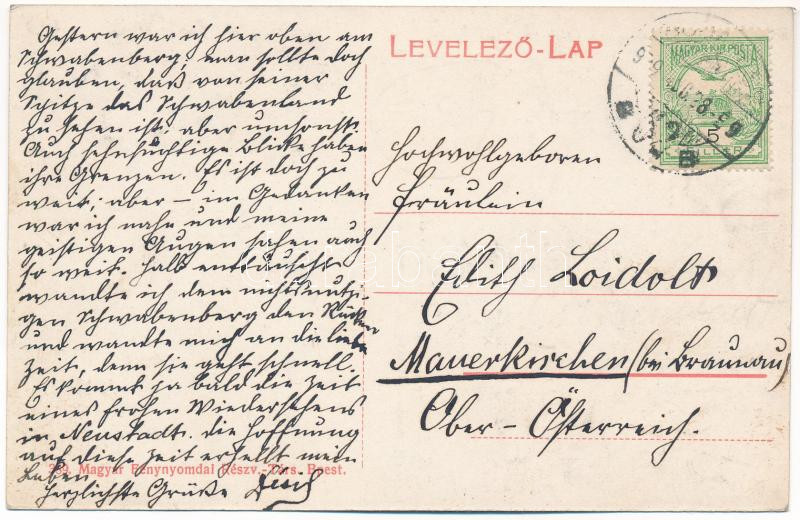 Gestern war ich hier oben am
Schwabenberg; man sollte doch
glauben, daß von seiner
Spitze das Schwabenland
zu sehen ist; aber umsonst.
Auch sehnsüchtige Blicke haben
ihre Grenzen. Es ist doch zu
weit; aber — im Gedanken
war ich nahe und meine
geistigen Augen sahen auch
so weit. Halb enttäuscht
wandte ich dem nichtsnutzi-
gen Schwabenberg den Rücken
und wandte mich an die liebe
Zeit, denn sie geht schnell.
Es kommt ja bald die Zeit
eines frohen Wiedersehens
in Neustadt. die Hoffnung
auf diese Zeit erhellt mein
Leben.
Herzlichste Grüße
339. Magyar Fénynyomdai Részv.-Társ. Bpest.
LEVELEZŐ-LAP
MAGYAR KIR. POSTA
5
FILLÉR
Hochwohlgeboren
Fräulein
Edith Loidolt
Mauerkirchen (bei Braunau)
Ober-Österreich.